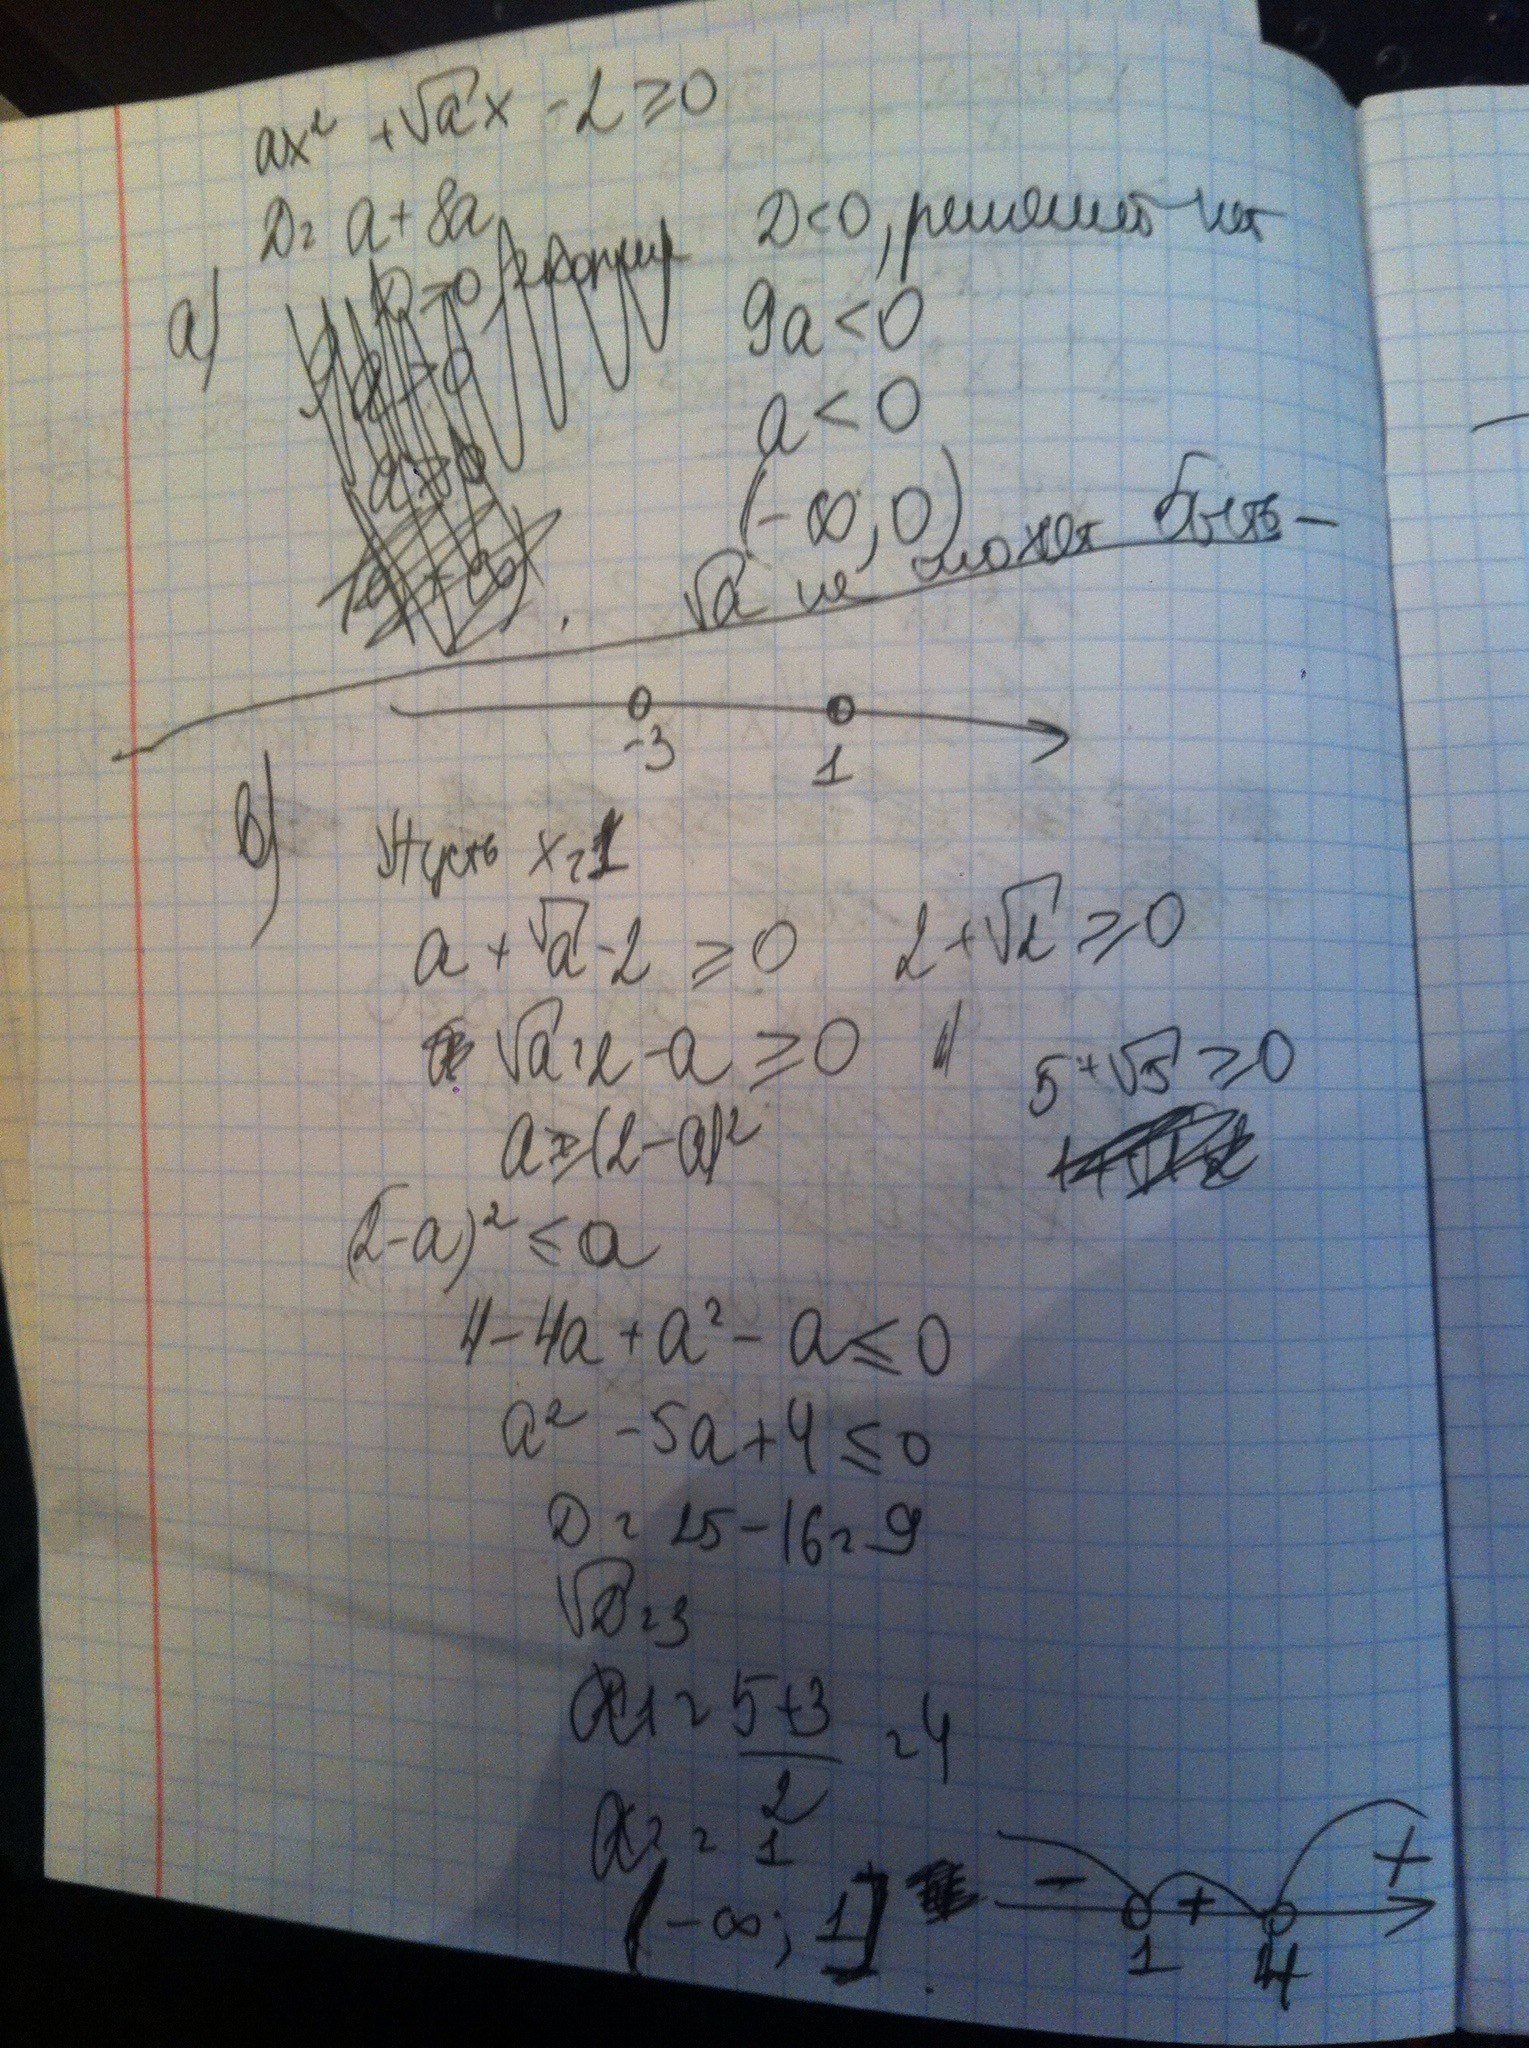 ax² + √a x - 2 ≥ 0
D = a + 8a
D < 0, решений нет
а)
D ≥ 0
9a < 0
a < 0
a ≥ 0
(-∞, 0)
√a не может быть -
-3
1
в) Пусть x = 1
a + √a - 2 ≥ 0
2 + √2 ≥ 0
√a = 2 - a ≥ 0
5 + √5 ≥ 0
a ≥ (2 - a)²
(2-a)² ≤ a
4 - 4a + a² - a ≤ 0
a² - 5a + 4 ≤ 0
D = 25 - 16 = 9
√D = 3
x1 = 5+3/2 = 4
x2 = 1
(-∞; 1]
- + +
1 4